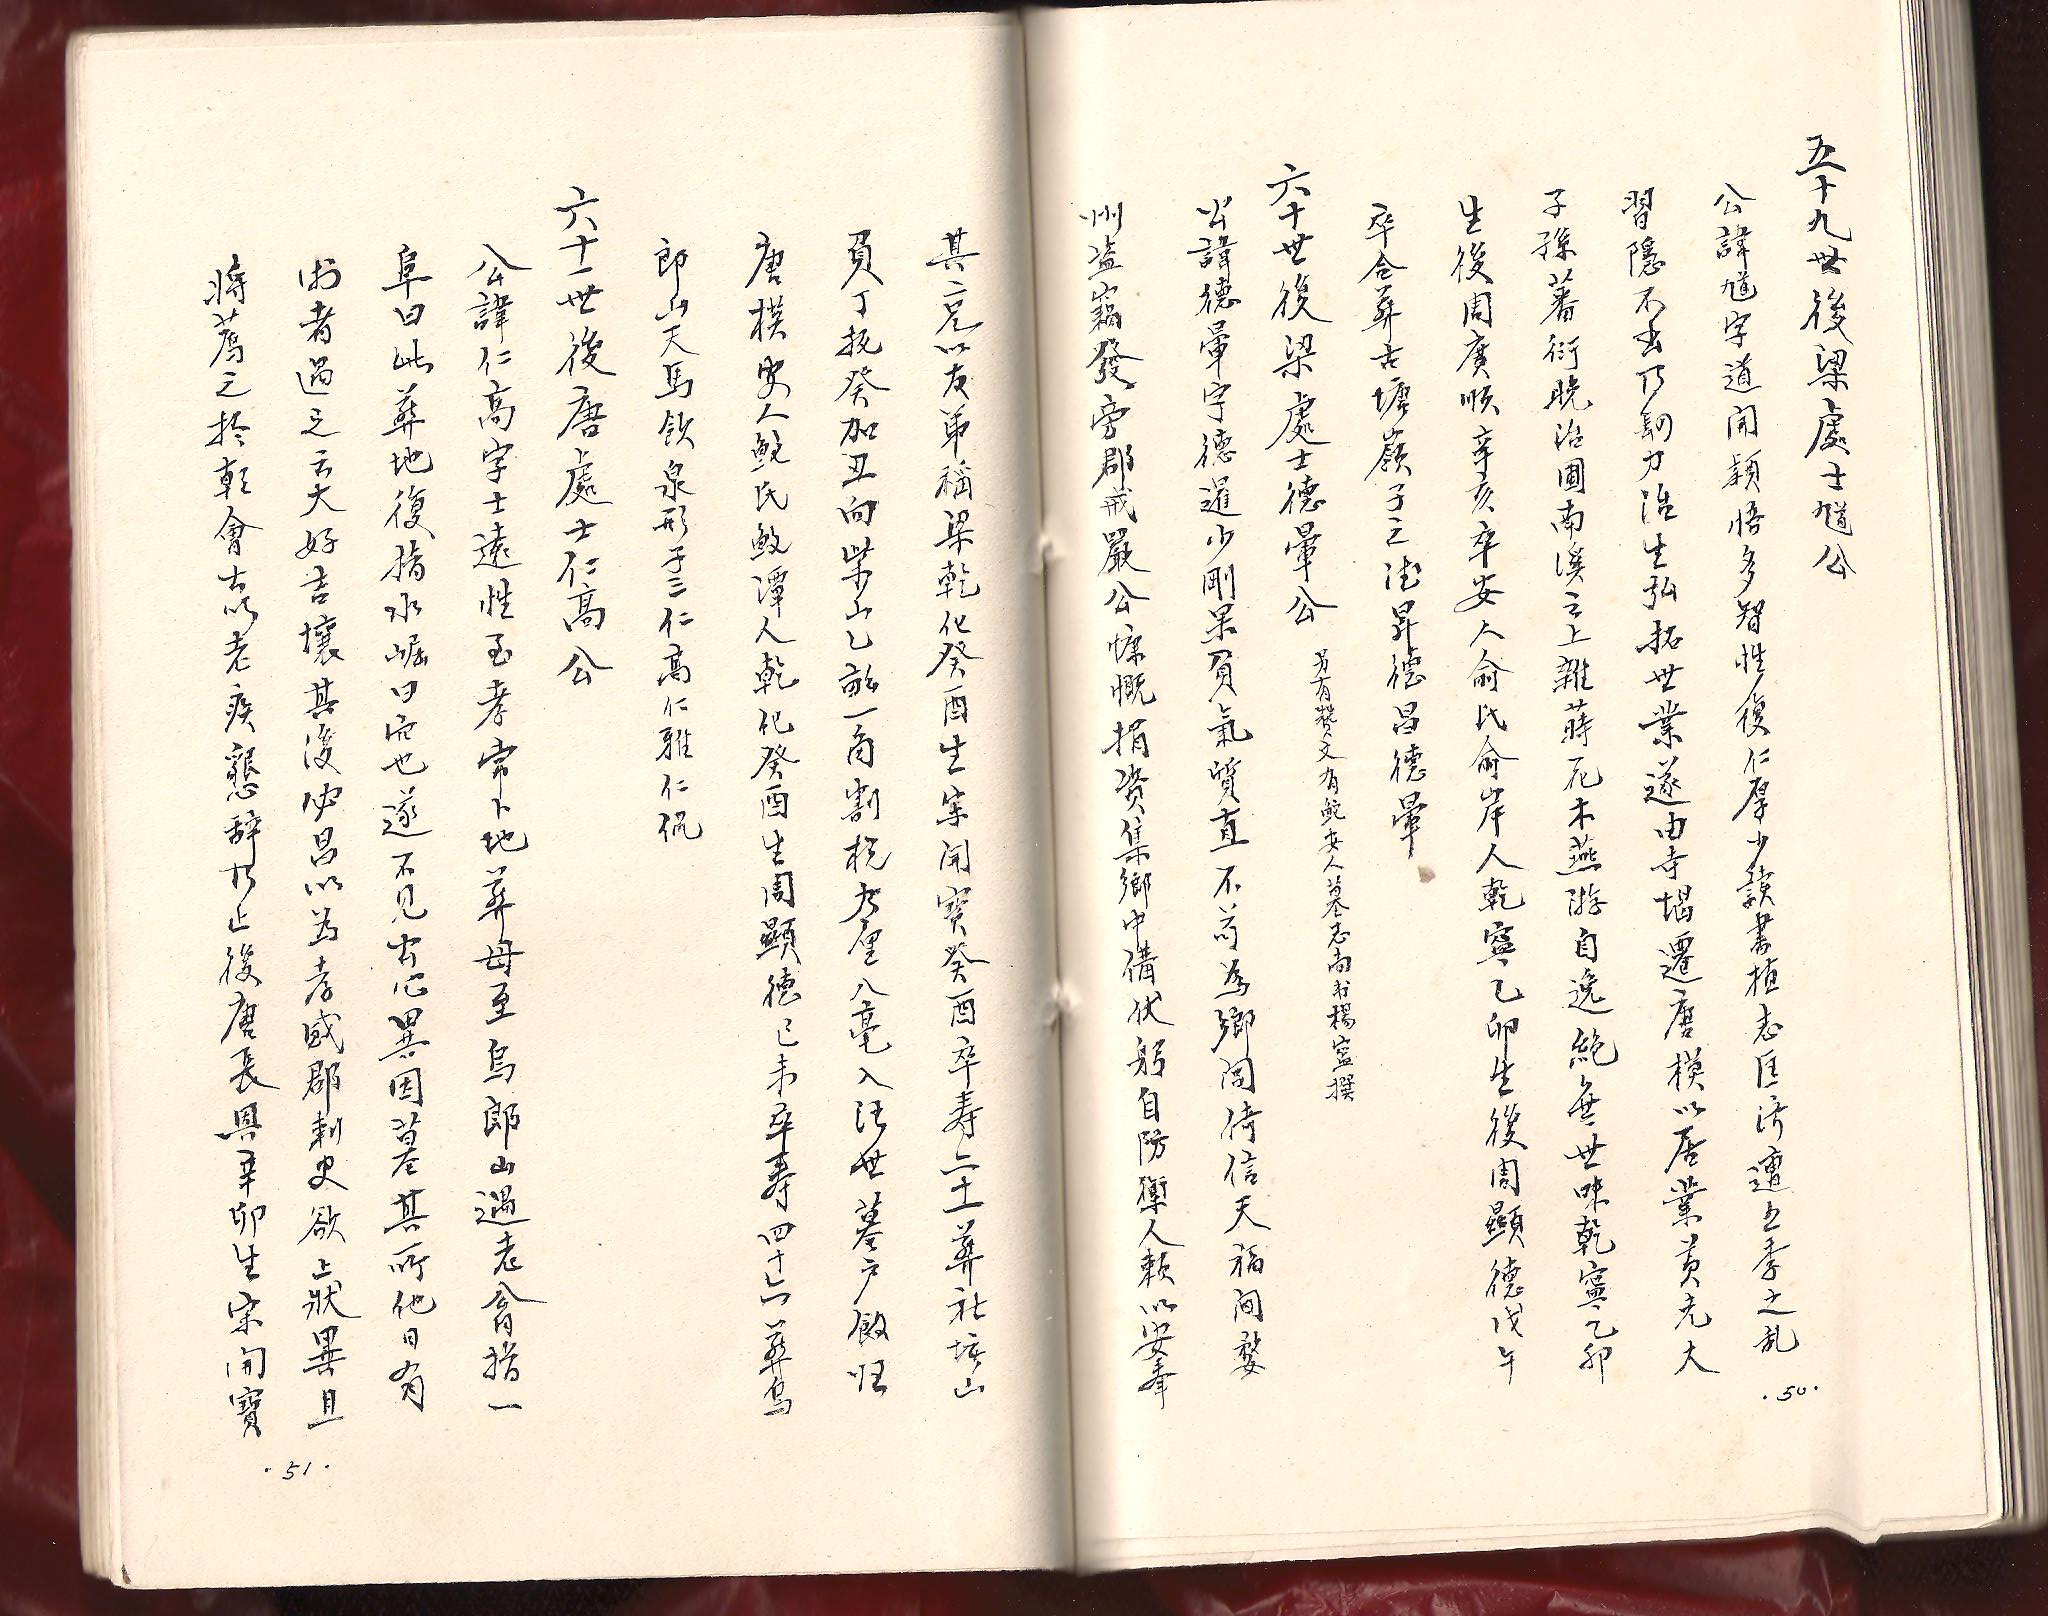 五十九世後梁處士馗公
公諱馗字道開穎悟多智性復仁厚少讀書植志匡济遭五季之乱
習隱不出乃躬力治生弘拓世業遂由寺堨遷唐模以居業黄光大
子孫蕃衍晚治圃南溪之上雜蒔花木燕游自逸絶無世味乾寧乙卯
生後周廣順辛亥卒安人俞氏俞岸人乾寧乙卯生後周顯德戊午
卒合葬古塘嶺子三德昇德昌德暈
六十世後梁處士德暈公 另有贊文有鮑安人墓志尚书楊寧撰
公諱德暈字德暹少剛果負氣質直不苟為鄉閭倚信天福间婺
州盗竊發旁郡戒嚴公慷慨捐资集鄉中備伏躬自防禦人赖以安奉
·50·
其兄以友弟稱梁乾化癸酉生宋開寶癸酉卒寿六十一葬社坑山
負丁抚癸加丑向柴山乙畝一角割税九厘八毫入汪世墓户皈旺
唐模吏人鮑氏鮫潭人乾化癸酉生周顯德己未卒寿四十六葬烏
郎山天馬飲泉形子三仁高仁雅仁侃
六十一世後唐處士仁高公
公諱仁高字士遠性至孝常卜地葬母至烏郎山遇老翁指一
阜曰此葬地復指水崛曰穴也遂不見公心異因墓其所他日有
術者過之云大好吉壤其後必昌以为孝感郡刺史欲上狀異且
將荐之於朝會公以老疾懇辞乃止後唐長興辛卯生宋開寶
·51·